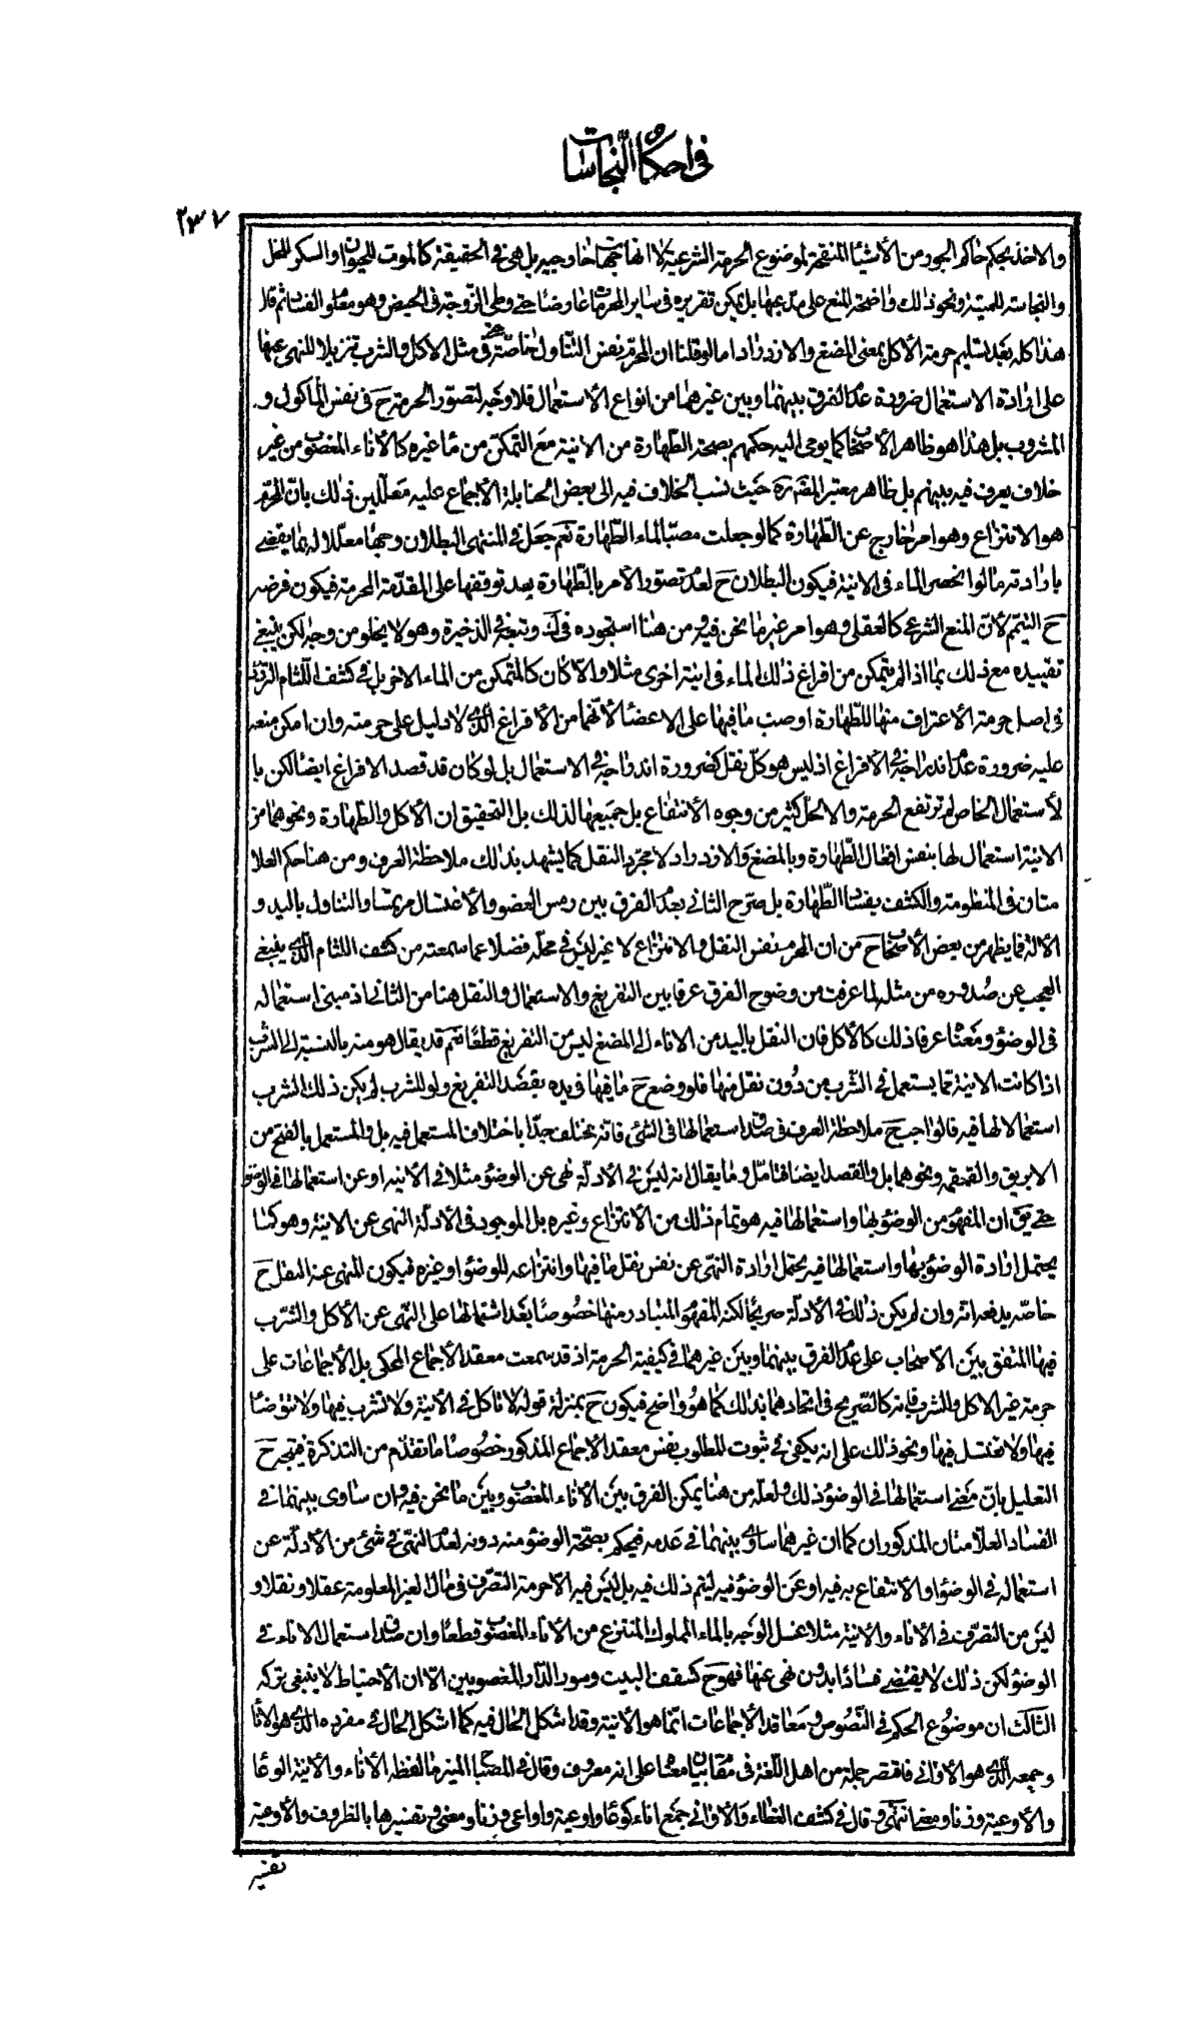 في احكام النجاسات
٢٣٧
والاخذ بحكم حاكم الجور من الأشياء المنقحة لموضوع الحرمة الشرعية لا انها جهات خارجية بل هي في الحقيقة كالموت للحيوان والسكر للخل
والنجاسة للميتة ونحو ذلك واضحة المنع على مدعيها بل يمكن تقريره في سائر المحرمات عارضا حتى وطي الزوجة في الحيض وهو معلوم الفساد ثم قال
هذا كله بعد تسليم حرمة الأكل بمعنى المضغ والازدراد اما لو قلنا ان المحرم نفس التناول خاصة حتى في مثل الاكل والشرب تنزيلا للنهي عنها
على ارادة الاستعمال ضرورة عدم الفرق بينهما وبين غيرهما من انواع الأستعمال فلا وجه لتصور الحرمة ح في نفس المأكول و
المشروب بل هذا هو ظاهر الأصحاب كما يومي اليه حكمهم بصحة الطهارة من الانية مع التمكن من ماء غيره كالأناء المغصوب من غير
خلاف يعرف فيه بينهم بل ظاهر معتبر المصنف ره حيث نسب الخلاف فيه الى بعض الحنابلة الأجماع عليه معللين ذلك بان المحرم
هو الانتزاع وهو امر خارج عن الطهارة كما لو جعلت مصبا لماء الطهارة نعم جعل في المنتهى البطلان وجها معللا له بما يقضي
بارادته ما لو انحصر الماء في الانية فيكون البطلان ح لعدم تصور الأمر بالطهارة بعد توقفها على المقدمة المحرمة فيكون فرضه
ح التيمم لأن المنع الشرعي كالعقلي وهو امر غير ما نحن فيه ومن هنا استجوده في ك وتبعه في الذخيرة وهو لا يخلو من وجه لكن ينبغي
تقييده مع ذلك بما اذا لم يتمكن من افراغ ذلك الماء في انية اخرى مثلا والا كان كالمتمكن من الماء الاخر بل في كشف اللثام التردد
في اصل حرمة الأغتراف منها للطهارة او صب ما فيها على الاعضاء لأنهما من الأفراغ الذي لا دليل على حرمته وان امكن منعه
عليه ضرورة عدم اندراجه في الافراغ اذ ليس هو كل نقل كضرورة اندراجه في الاستعمال بل لو كان قد قصد الافراغ ايضا لكن با
لأستعمال الخاص لم ترتفع الحرمة والا لحل كثير من وجوه الأنتفاع بل جميعها لذلك بل التحقيق ان الأكل والطهارة ونحوهما من
الانية استعمال لها بنفس افعال الطهارة وبالمضغ والازدراد لا مجرد النقل كما يشهد بذلك ملاحظة العرف ومن هنا حكم العلا
متان في المنظومة والكشف بفساد الطهارة بل صرح الثاني بعدم الفرق بين رمس العضو والأغتسال مرتمسا والتناول باليد و
الألة فما يظهر من بعض الأصحاب ح من ان المحرم نفس النقل والانتزاع لا غير ليس في محله فضلا عما سمعته من كشف اللثام الذي ينبغي
العجب عن صدوره من مثله لما عرفت من وضوح الفرق عرفا بين التفريغ والاستعمال والنقل هنا من الثاني اذ مبنى استعماله
في الوضوء ومعناه عرفا ذلك كالأكل فان النقل باليد من الاناء الى المضغ ليس من التفريغ قطعا نعم قد يقال هو منه بالنسبة الى الشرب
اذا كانت الانية مما يستعمل في الشرب من دون نقل منها فلو وضع ح ما فيها في يده بقصد التفريغ ولو للشرب لم يكن ذلك الشرب
استعمالا لها فيه فالواجب ح ملاحظة العرف في صدق استعمالها في الشئ فانه يختلف جدا باختلاف المستعمل فيه بل والمستعمل بالفتح من
الابريق والقمقمة ونحوهما بل والقصد ايضا فتأمل وما يقال انه ليس في الأدلة نهي عن الوضوء مثلا في الأنية او عن استعمالها في الوضوء
حتى يق ان المفهوم من الوضوء بها واستعمالها فيه هو تمام ذلك من الانتزاع وغيره بل الموجود في الأدلة النهي عن الانية وهو كما
يحتمل ارادة الوضوء بها واستعمالها فيه يحتمل ارادة النهي عن نفس نقل ما فيها وانتزاعه للوضوء او غيره فيكون المنهي عنه النقل ح
خاصة يدفعه انه وان لم يكن ذلك في الأدلة صريحا لكنه المفهوم المتبادر منها خصوصا بعد اشتمالها على النهي عن الأكل والشرب
فيها المتفق بين الاصحاب على عدم الفرق بينهما وبين غيرهما في كيفية الحرمة اذ قد سمعت معقد الأجماع المحكي بل الأجماعات على
حرمة غير الاكل والشرب فانه كالصريح في اتحادهما بذلك كما هو واضح فيكون ح بمنزلة قوله لا تأكل في الأنية ولا تشرب فيها ولا تتوضأ
فيها ولا تغتسل فيها ونحو ذلك على انه يكفي في ثبوت المطلوب نفس معقد الأجماع المذكور خصوصا ما تقدم من التذكرة فيتجه ح
التعليل بان معنى استعمالها في الوضوء ذلك ولعله من هنا يمكن الفرق بين الأناء المغصوب وبين ما نحن فيه وان ساوى بينهما في
الفساد العلامتان المذكوران كما ان غيرهما ساوى بينهما في عدمه فيحكم بصحة الوضوء منه دونه لعدم النهي في شئ من الأدلة عن
استعماله في الوضوء او الأنتفاع به فيه او عن الوضوء فيه ليتم ذلك فيه بل ليس فيه الا حرمة التصرف في مال الغير المعلومة عقلا ونقلا و
ليس من التصرف في الأناء والانية مثلا غسل الوجه بالماء المملوك المنتزع من الأناء المغصوب قطعا وان صدق استعمال الاناء في
الوضوء لكن ذلك لا يقتضي فسادا بدون نهي عنها فهو ح كسقف البيت وسور الدار المغصوبين الا ان الأحتياط لا ينبغي تركه
الثالث ان موضوع الحكم في النصوص ومعاقد الأجماعات انما هو الانية وقد اشكل الحال فيه كما اشكل الحال في مفرده الذي هو الأناء
وجمعه الذي هو الأواني فاقتصر جملة من اهل اللغة في مقام بيان معناه على انه معروف وقال في المصباح المنير ما لفظه الأناء والأنية الوعاء
والأوعية وزنا ومعنى انتهى وقال في كشف الغطاء والأواني جمع اناء كوعاء واوعية واواعي وزنا ومعنى وتفسيرها بالظروف والأوعية
تفسير